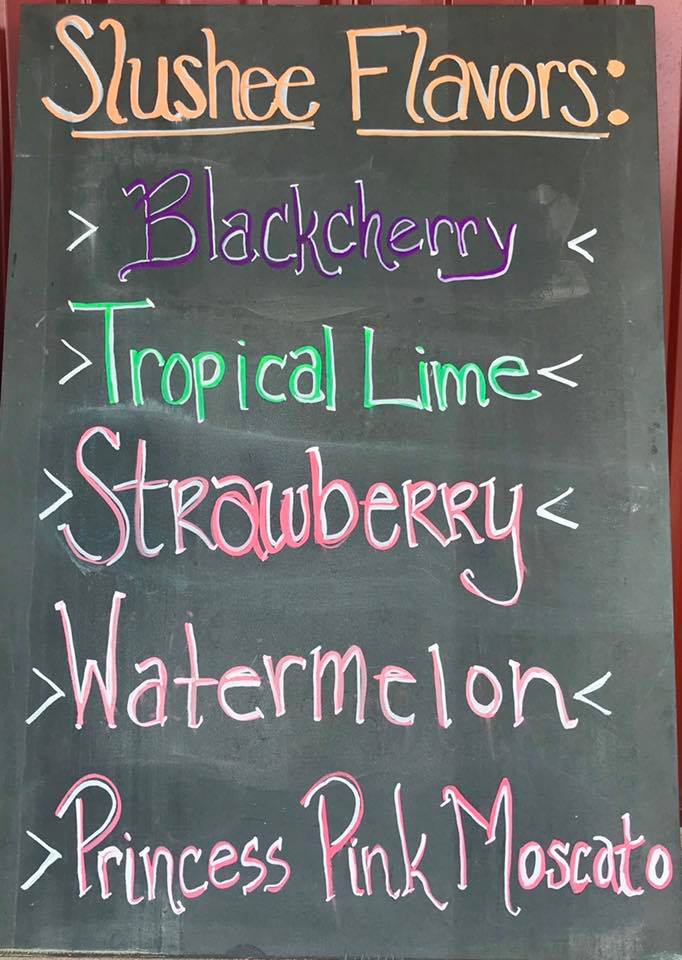 Slushee Flavors:
> Blackcherry <
> Tropical Lime <
> Strawberry <
> Watermelon <
> Princess Pink Moscato